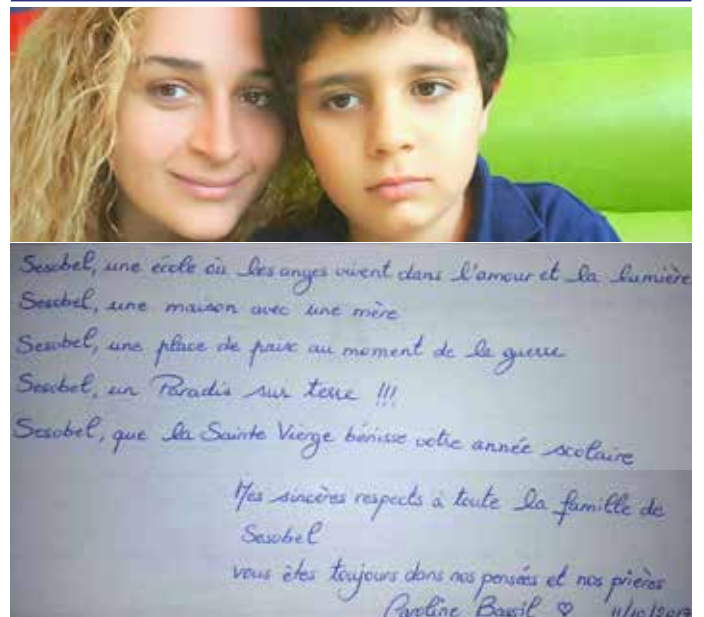 Sesobel, une école où les anges vivent dans l'amour et la lumière
Sesobel, une maison avec une mère
Sesobel, une place de paix au moment de la guerre
Sesobel, un Paradis sur terre !!!
Sesobel, que la Sainte Vierge bénisse votre année scolaire
Mes sincères respects à toute la famille de
Sesobel
vous êtes toujours dans nos pensées et nos prières
Caroline Bassil ♡ 11/10/2017